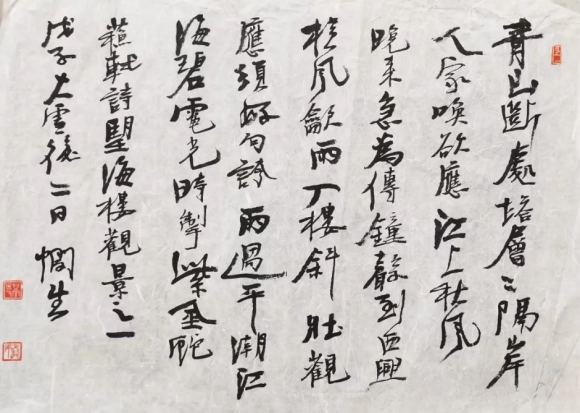 青山断處塔層〻隔岸
人家喚欲應江上秋風
晚来急為傳鐘聲到西興
横風龡雨入樓斜壮觀
應須好句誇雨過平潮江
海碧電光時掣紫金蛇
蘇軾詩望海樓觀景之一
戊子大雪後二日 生